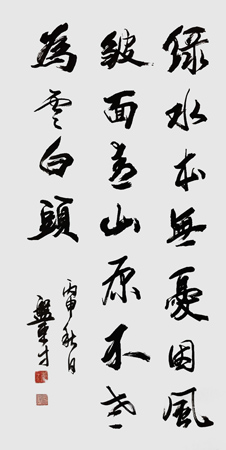 綠水本無憂因風
皺面青山原不老
為雪白頭
丙申秋日